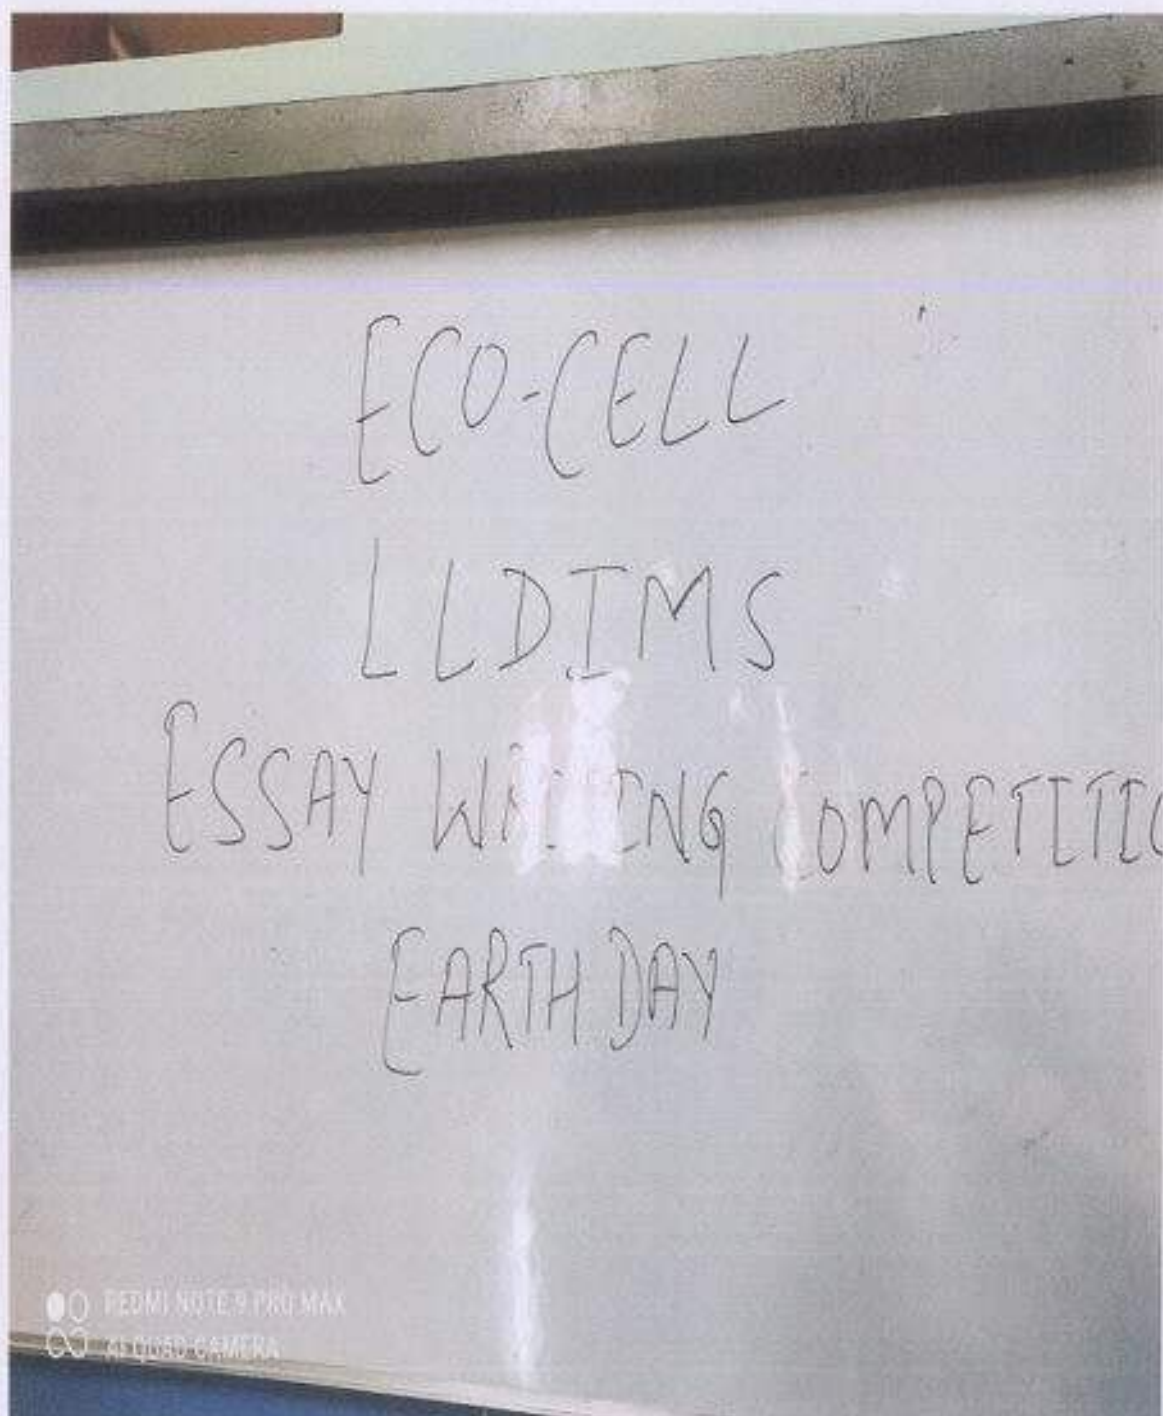 ECO-CELL
LLDIMS
ESSAY WRITING COMPETITIO
EARTH DAY
REDMI NOTE 9 PRO MAX
AI QUAD CAMERA